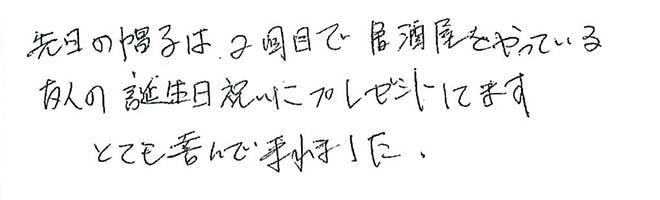 先日の帽子は、2回目で居酒屋をやっている
友人の誕生日祝いにプレゼントしてます
とても喜んで来れました.